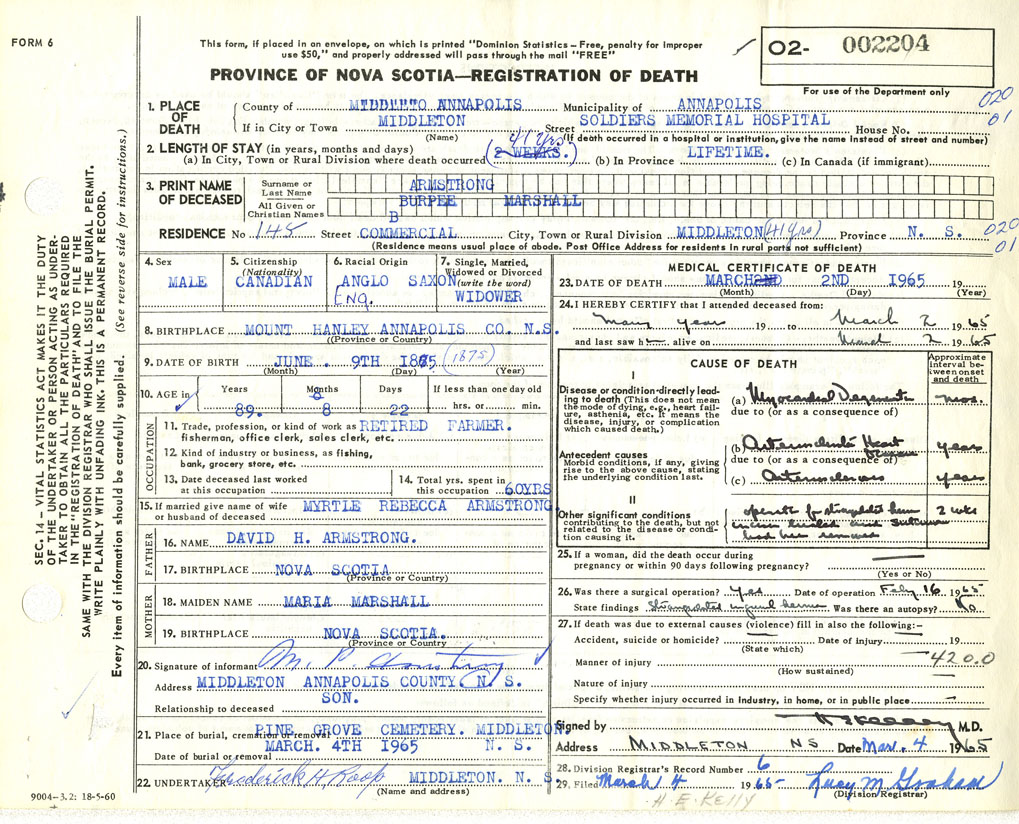 FORM 6
This form, if placed in an envelope, on which is printed "Dominion Statistics – Free, penalty for improper
use $50," and properly addressed will pass through the mail "FREE"
PROVINCE OF NOVA SCOTIA—REGISTRATION OF DEATH
O2- 002204
For use of the Department only
020
01
1. PLACE OF DEATH
County of MIDDLETO ANNAPOLIS Municipality of ANNAPOLIS
If in City or Town MIDDLETON Street SOLDIERS MEMORIAL HOSPITAL House No.
(Name) (If death occurred in a hospital or institution, give the name instead of street and number)
2. LENGTH OF STAY (in years, months and days) 41 yrs
(a) In City, Town or Rural Division where death occurred (2 WEEKS.) (b) In Province LIFETIME. (c) In Canada (if immigrant)
3. PRINT NAME OF DECEASED
Surname or Last Name ARMSTRONG
All Given or Christian Names BURPEE MARSHALL
B
RESIDENCE No 148 Street COMMERCIAL City, Town or Rural Division MIDDLETON (41 yrs) Province N. S. 020
01
(Residence means usual place of abode. Post Office Address for residents in rural parts not sufficient)
4. Sex MALE
5. Citizenship (Nationality) CANADIAN
6. Racial Origin ANGLO SAXON
Eng.
7. Single, Married, Widowed or Divorced (write the word) WIDOWER
8. BIRTHPLACE MOUNT HANLEY ANNAPOLIS CO. N.S.
(Province or Country)
9. DATE OF BIRTH JUNE. 9TH 1875 (1875)
(Month) (Day) (Year)
10. AGE in Years Months Days If less than one day old
8
89. 8 22 hrs. or min.
OCCUPATION
11. Trade, profession, or kind of work as RETIRED FARMER.
fisherman, office clerk, sales clerk, etc.
12. Kind of industry or business, as fishing,
bank, grocery store, etc.
13. Date deceased last worked at this occupation
14. Total yrs. spent in this occupation 60YRS
15. If married give name of wife or husband of deceased MYRTLE REBECCA ARMSTRONG
FATHER
16. NAME DAVID H. ARMSTRONG.
17. BIRTHPLACE NOVA SCOTIA
(Province or Country)
MOTHER
18. MAIDEN NAME MARIA MARSHALL
19. BIRTHPLACE NOVA SCOTIA.
(Province or Country)
20. Signature of informant M. P. Armstrong
Address MIDDLETON ANNAPOLIS COUNTY. N. S.
Relationship to deceased SON.
21. Place of burial, cremation or removal PINE GROVE CEMETERY. MIDDLETON.
Date of burial or removal MARCH. 4TH 1965 N. S.
22. UNDERTAKER Frederick H Roop MIDDLETON. N. S.
(Name and address)
9004–3.2: 18-5-60
SEC. 14—VITAL STATISTICS ACT MAKES IT THE DUTY
OF THE UNDERTAKER OR PERSON ACTING AS UNDER-
TAKER TO OBTAIN ALL THE PARTICULARS REQUIRED
IN THE "REGISTRATION OF DEATH" AND TO FILE THE
SAME WITH THE DIVISION REGISTRAR WHO SHALL ISSUE THE BURIAL PERMIT.
WRITE PLAINLY WITH UNFADING INK. THIS IS A PERMANENT RECORD.
Every item of information should be carefully supplied. (See reverse side for instructions.)
MEDICAL CERTIFICATE OF DEATH
23. DATE OF DEATH MARCH2ND 2ND 1965 19
(Month) (Day) (Year)
24. I HEREBY CERTIFY that I attended deceased from:
many years 19 to March 2 1965
and last saw h alive on March 2 1965
CAUSE OF DEATH
Approximate interval between onset and death
I
Disease or condition directly leading to death (This does not mean the mode of dying, e.g., heart failure, asthenia, etc. It means the disease, injury, or complication which caused death.)
(a) Myocardial Degenerate mos.
due to (or as a consequence of)
Antecedent causes
Morbid conditions, if any, giving rise to the above cause, stating the underlying condition last.
(b) Arteriosclerotic Heart Disease years
due to (or as a consequence of)
(c) Arteriosclerosis years
II
Other significant conditions
contributing to the death, but not related to the disease or condition causing it.
operate for strangulated hernia 2 wks
incision healed and sutures
had been removed
25. If a woman, did the death occur during
pregnancy or within 90 days following pregnancy?
(Yes or No)
26. Was there a surgical operation? Yes Date of operation Feby 16 1965
State findings Strangulated inguinal hernia Was there an autopsy? No
27. If death was due to external causes (violence) fill in also the following:–
Accident, suicide or homicide? Date of injury 19
(State which)
420.0
Manner of injury
(How sustained)
Nature of injury
Specify whether injury occurred in industry, in home, or in public place
Signed by H E Kelley M.D.
Address MIDDLETON NS Date Mar. 4 1965
28. Division Registrar's Record Number 6
29. Filed March 4 1965 Lucy M Graham
(Division Registrar)
H. E. KELLY